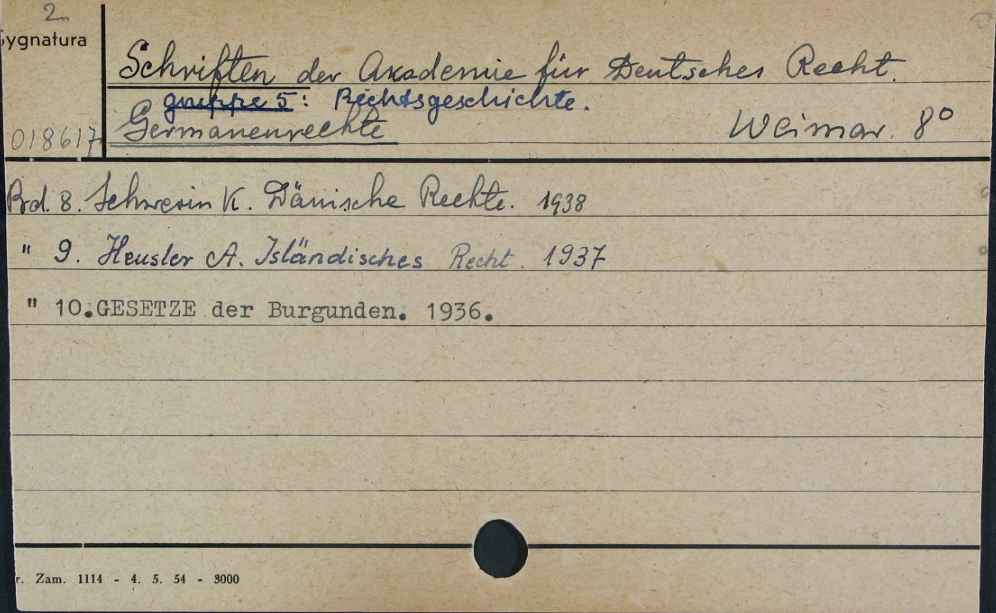 2
Sygnatura
Schriften der Akademie für Deutsches Recht.
gruppe 5: Rechtsgeschichte.
018617 Germanenrechte Weimar. 8°
Bd. 8. Schwerin K. Dänische Rechte. 1938
" 9. Heusler A. Isländisches Recht. 1937
" 10. GESETZE der Burgunden. 1936.
r. Zam. 1114 - 4. 5. 54 - 3000